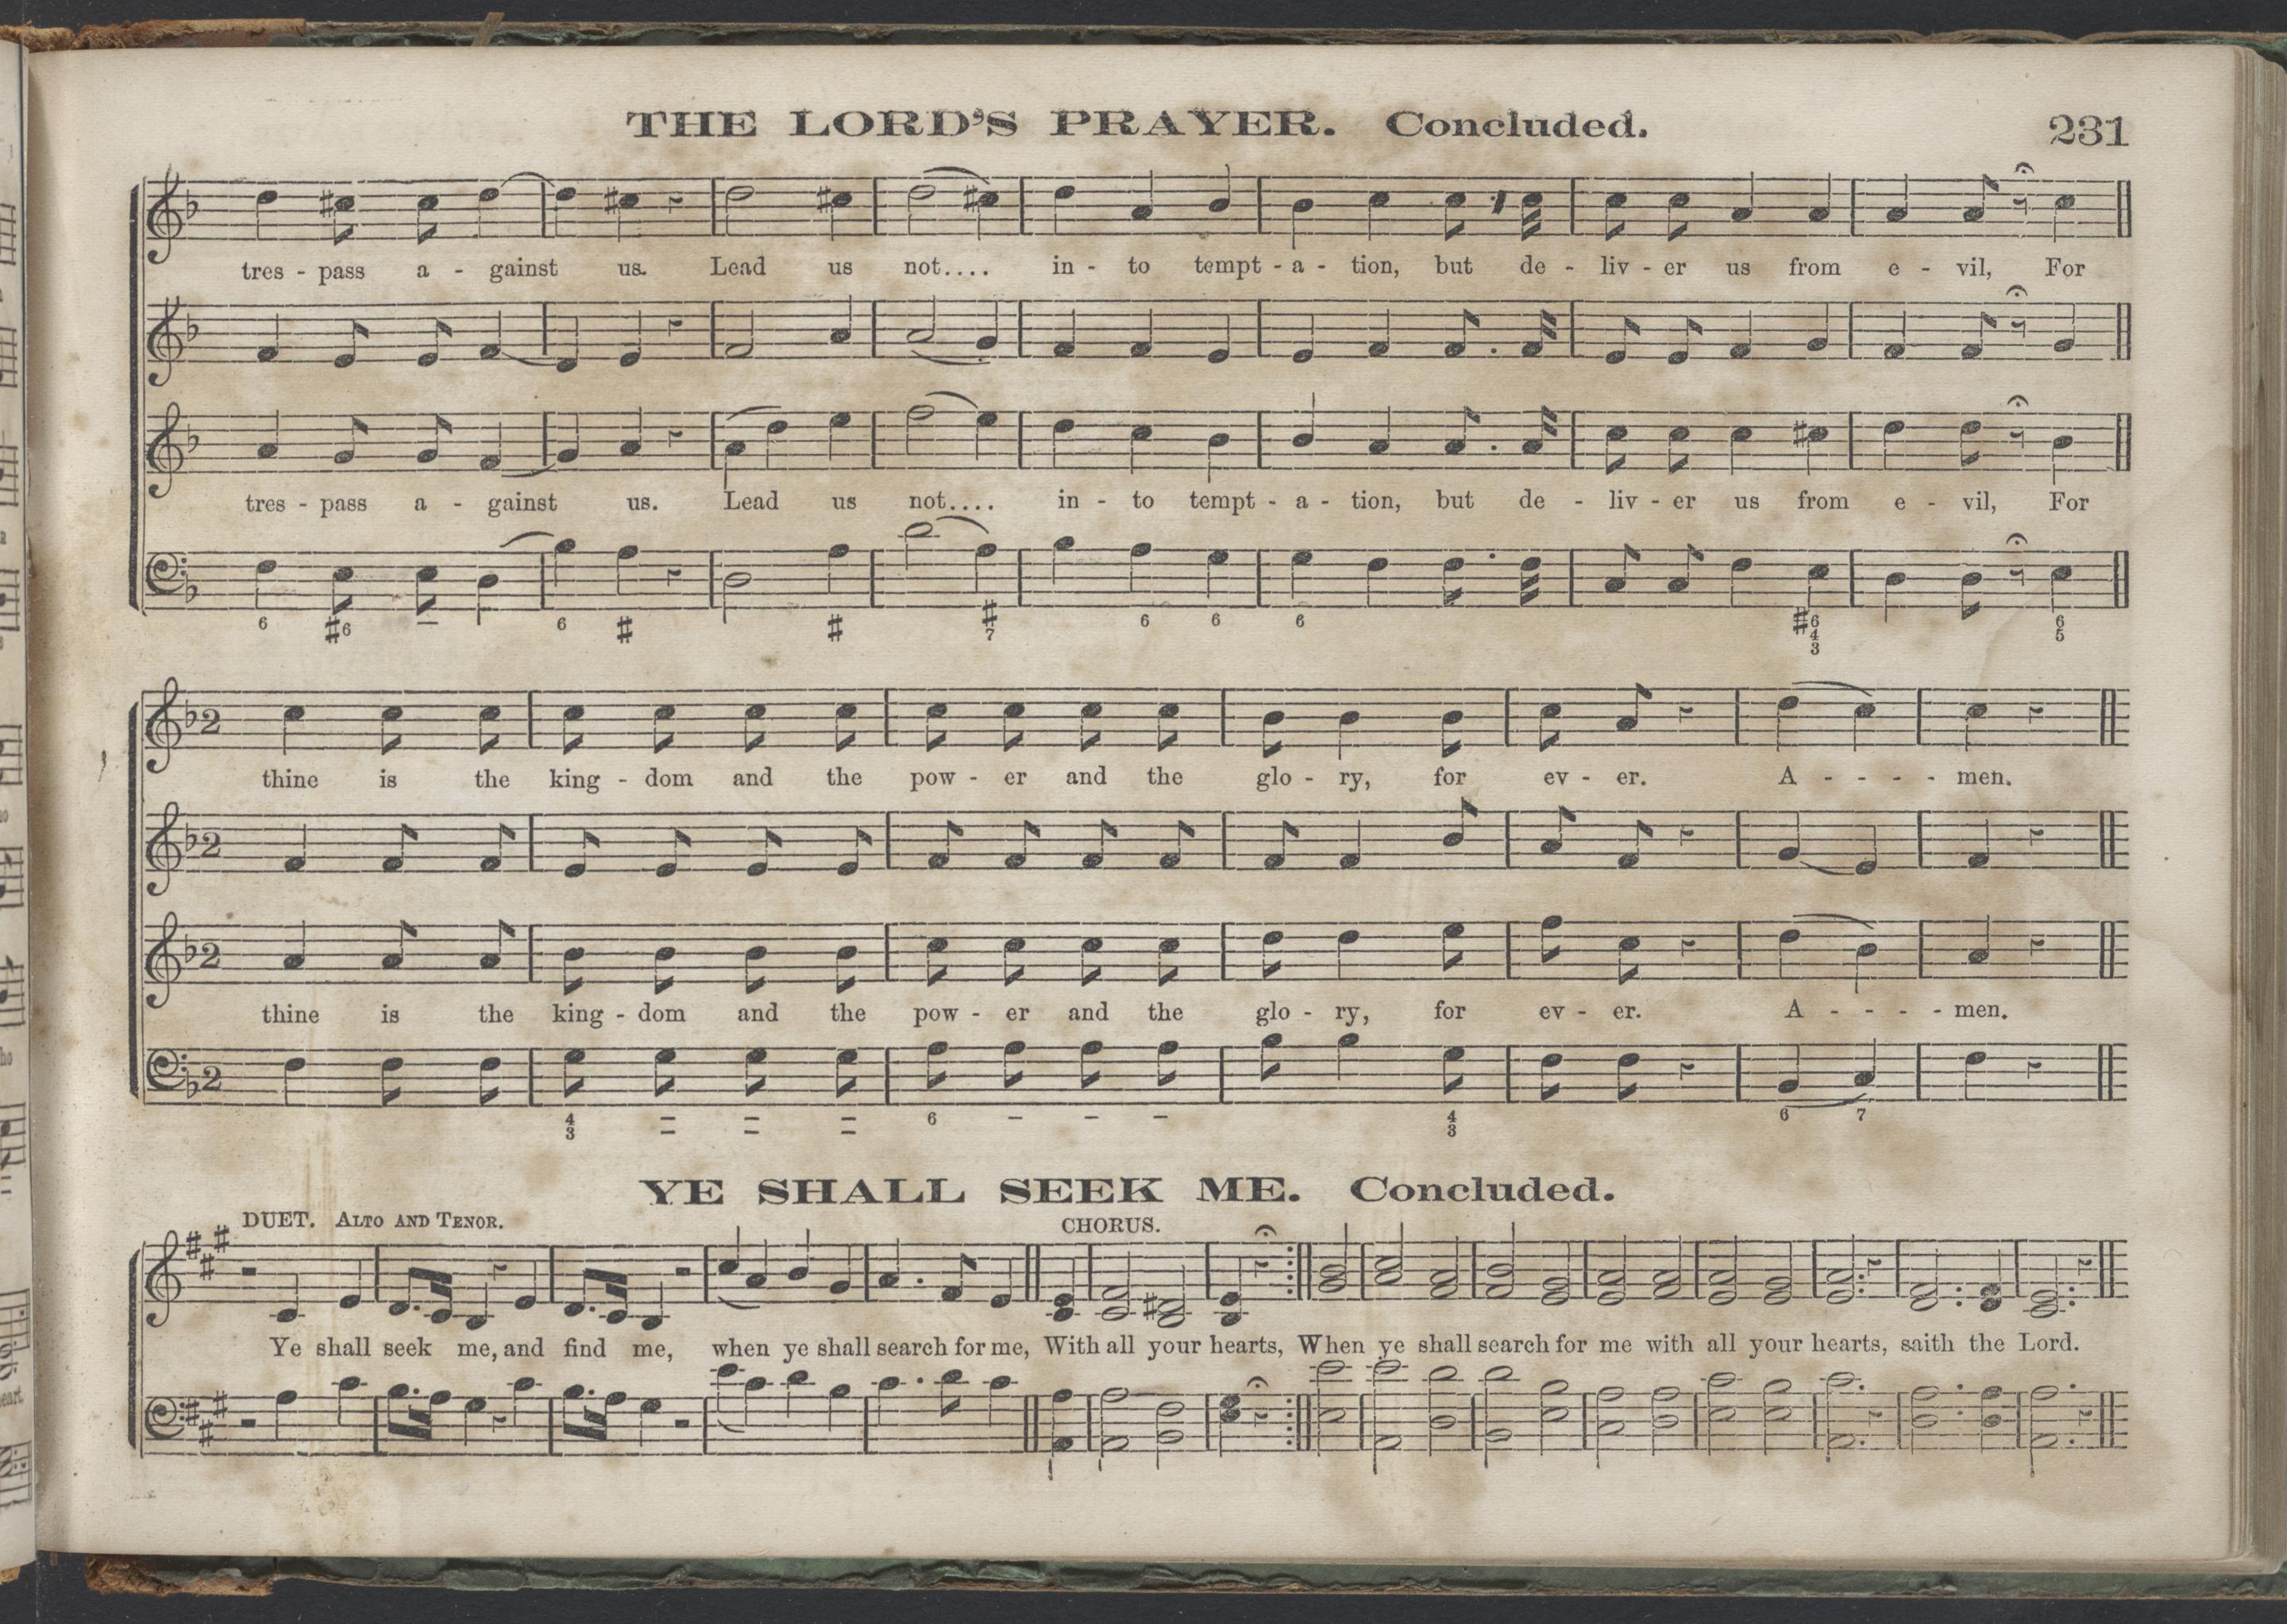 THE LORD'S PRAYER. Concluded. 231
tres - pass a - gainst us. Lead us not.... in - to tempt - a - tion, but de - liv - er us from e - vil, For
tres - pass a - gainst us. Lead us not.... in - to tempt - a - tion, but de - liv - er us from e - vil, For
6 #6 – 6 # # # 7 6 6 6 #6 4 3 6 5
2
thine is the king - dom and the pow - er and the glo - ry, for ev - er. A - - - - men.
2
2
thine is the king - dom and the pow - er and the glo - ry, for ev - er. A - - - - men.
2
4 3 6 – – – 4 3 6 7
YE SHALL SEEK ME. Concluded.
DUET. ALTO AND TENOR. CHORUS.
Ye shall seek me, and find me, when ye shall search for me, With all your hearts, When ye shall search for me with all your hearts, saith the Lord.